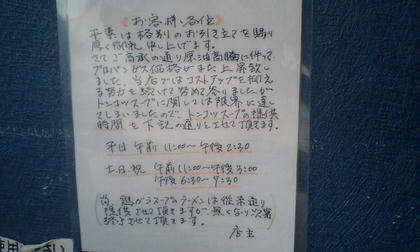 《お客様各位》
平素は格別のお引き立てを賜り
厚く御礼申し上げます。
さてご高承の通り原油高騰に伴って
プロパンガス価格がまた上昇致し
ました。当店ではコストアップを抑え
る努力を続けて努めて参りましたが
トンコツスープに関しては限界に達し
てしまいましたので、トンコツスープの提供
時間を下記の通りとさせて頂きます。
平日 午前11:00〜午後2:30
土.日.祝 午前11:00〜午後3:00
午後6:30〜9:30
尚、鶏がらスープのラーメンは従来通り
提供させて頂きますが、無くなり次第
終了させて頂きます。
店主
使用
さい